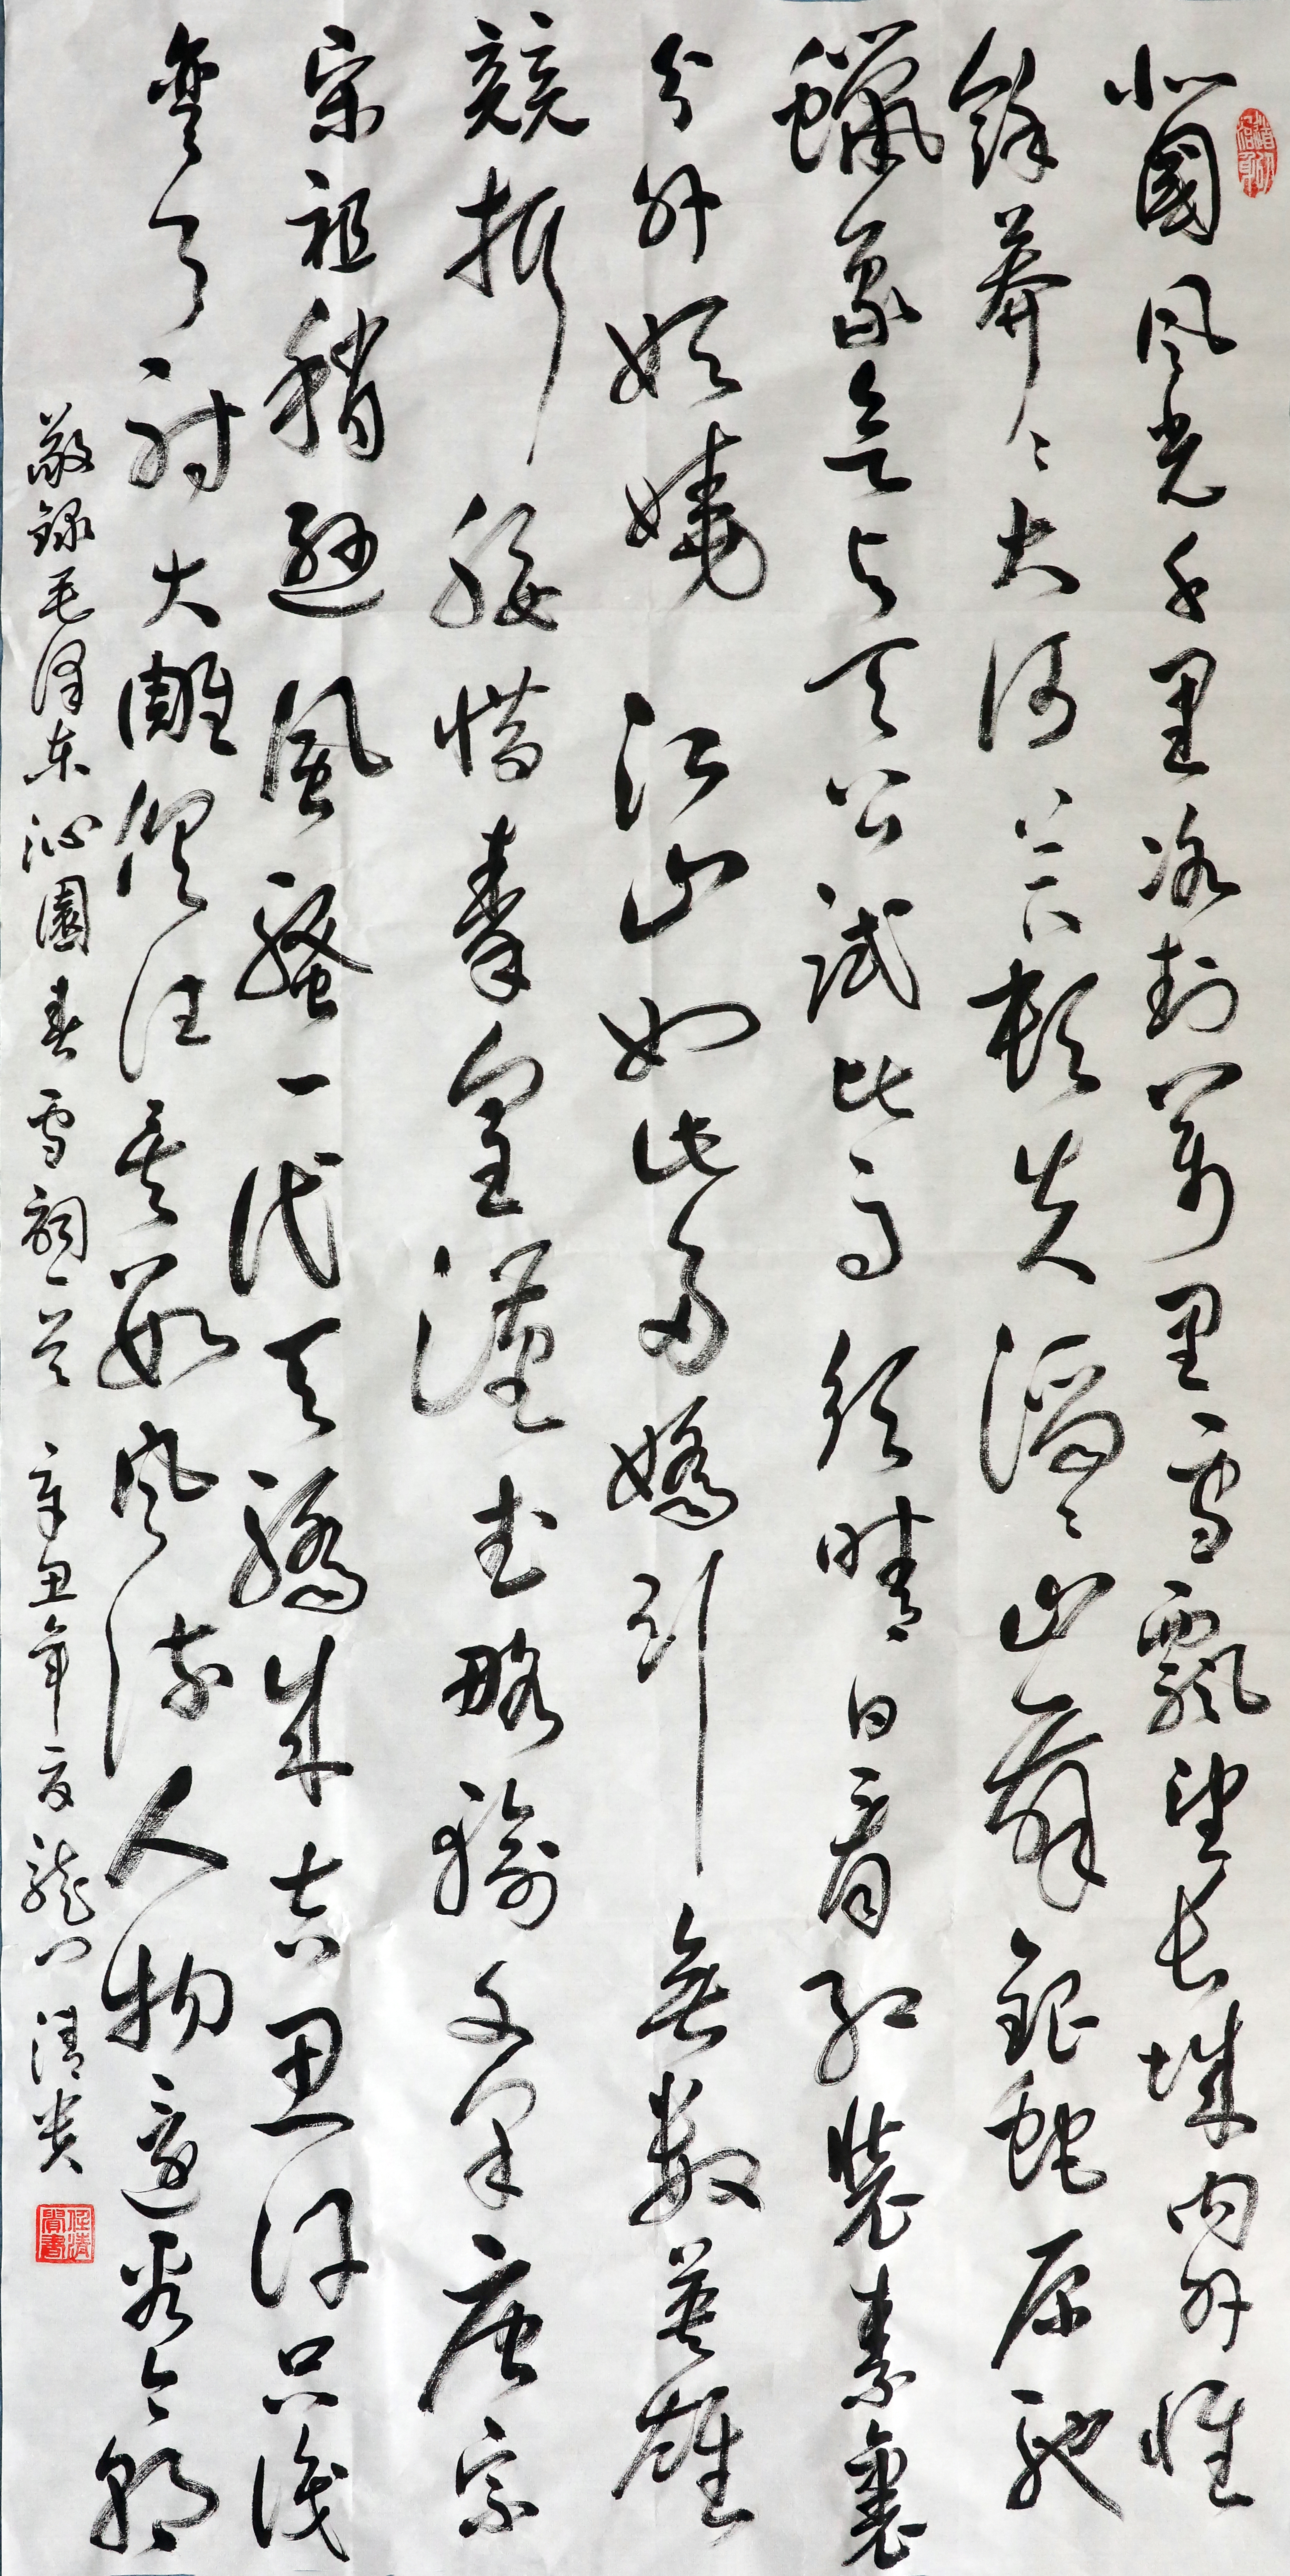 北國风光千里冰封萬里雪飄望长城内外惟
餘莽々大河上下頓失滔々山舞銀蛇原馳
蠟象欲与天公試比高须晴日看红裝素裹
分外妖嬈江山如此多嬌引無數英雄
競折腰惜秦皇漢武略輸文采唐宗
宋祖稍遜風騷一代天驕成吉思汗只識
彎弓射大雕俱往矣數风流人物還看今朝
敬録毛泽东沁園春雪詞一首 辛丑年夏龍门清贵
任清貴書